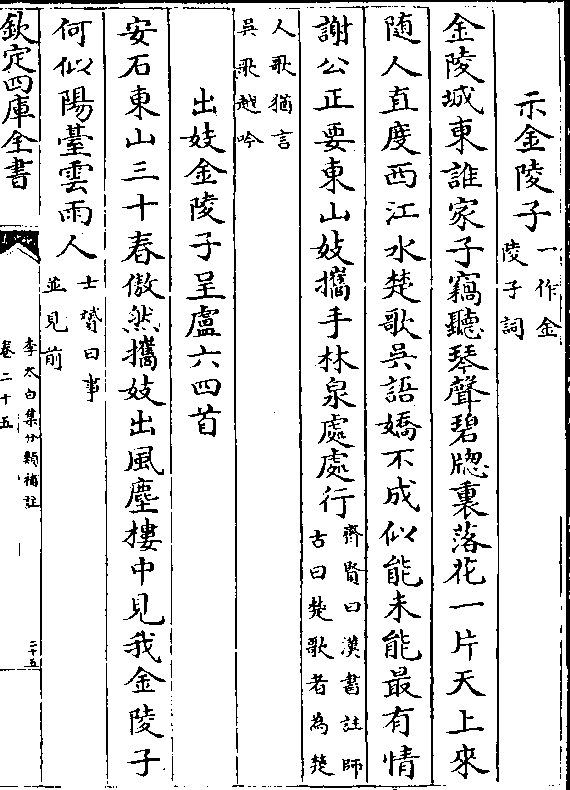 示金陵子一作金
陵子詞
金陵城東誰家子竊聽琴聲碧牕裏落花一片天上來
随人直度西江水楚歌吳語嬌不成似能未能最有情
謝公正要東山妓攜手林泉處處行齊賢曰漢書註師
古曰楚歌者為楚
人歌猶言
吳歌越吟
出妓金陵子呈盧六四首
安石東山三十春傲然攜妓出風塵樓中見我金陵子
何似陽臺雲雨人士贇曰事
並見前
欽定四庫全書
李太白集分類補註
卷二十五
二十五